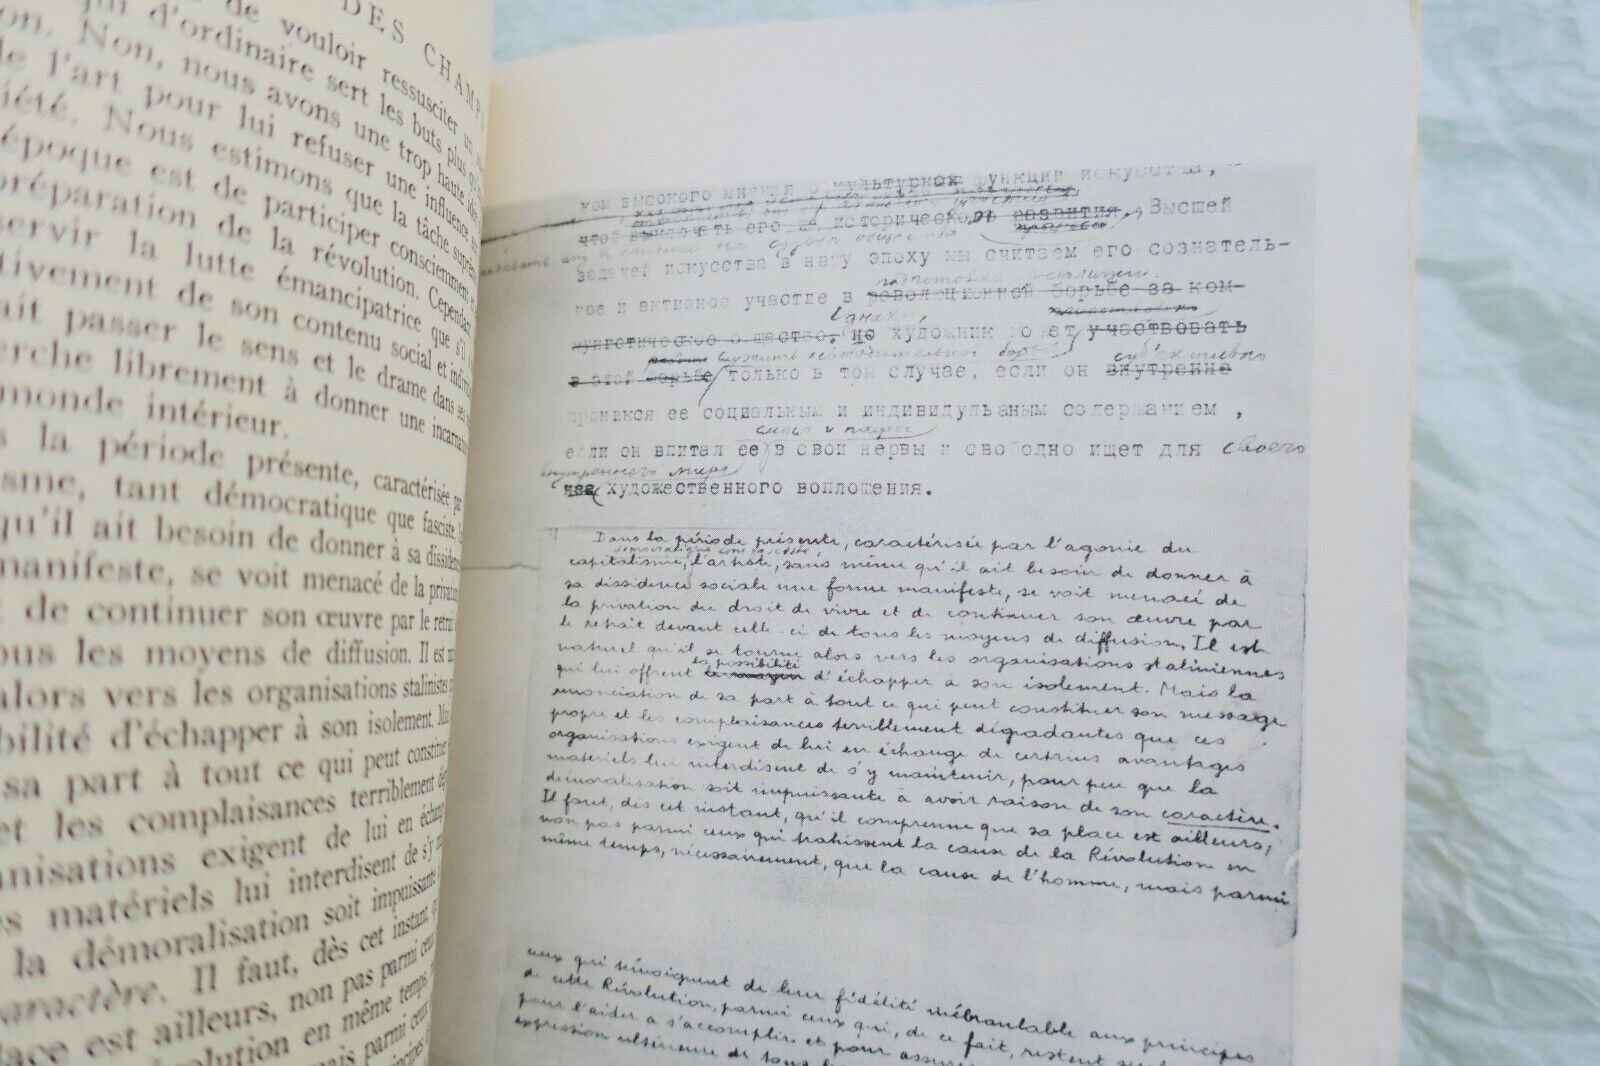 DES CHAMPS
de vouloir ressusciter un
qui d'ordinaire sert les buts plus
on. Non, nous avons une trop haute idée
de l'art pour lui refuser une influence sur
iété. Nous estimons que la tâche suprême
époque est de participer consciemment et
préparation de la révolution. Cependant,
servir la lutte émancipatrice que s'il
tivement de son contenu social et indivi
ait passer le sens et le drame dans ses
erche librement à donner une incarnation
monde intérieur.
s la période présente, caractérisée par
isme, tant démocratique que fasciste,
qu'il ait besoin de donner à sa dissidence
manifeste, se voit menacé de la privation
t de continuer son œuvre par le retrait
ous les moyens de diffusion. Il est
alors vers les organisations stalinistes
bilité d'échapper à son isolement. Mais
sa part à tout ce qui peut constituer
et les complaisances terriblement dég
anisations exigent de lui en échange
es matériels lui interdisent de s'y m
la démoralisation soit impuissante
aractère. Il faut, dès cet instant,
lace est ailleurs, non pas parmi ceux
olution en même temps,
mais parmi ceux
cipes
ком высокого мнения о культурной функции искусства,
чтоб выключать его из исторического развития. Высшей
на судьбы общества
задачей искусства в нашу эпоху мы считаем его сознатель-
подготовке революции.
ное и активное участие в революционной борьбе за ком-
мунистическое общество. Но художник может участвовать
служить освободительной борьбе субъективно
в этой борьбе только в том случае, если он внутренне
проникся ее социальным и индивидульаным содержанием,
смысл и пафос
если он впитал ее в свои нервы и свободно ищет для своего
внутреннего мира
художественного воплощения.
Dans la période présente, caractérisée par l'agonie du
démocratique comme fasciste,
capitalisme, l'artiste, sans même qu'il ait besoin de donner à
sa dissidence sociale une forme manifeste, se voit menacé de
la privation du droit de vivre et de continuer son œuvre par
le retrait devant celle-ci de tous les moyens de diffusion. Il est
naturel qu'il se tourne alors vers les organisations staliniennes
la possibilité
qui lui offrent le moyen d'échapper à son isolement. Mais la
renonciation de sa part à tout ce qui peut constituer son message
propre et les complaisances terriblement dégradantes que ces
organisations exigent de lui en échange de certains avantages
matériels lui interdisent de s'y maintenir, pour peu que la
démoralisation soit impuissante à avoir raison de son caractère.
Il faut, dès cet instant, qu'il comprenne que sa place est ailleurs,
non pas parmi ceux qui trahissent la cause de la Révolution en
même temps, nécessairement, que la cause de l'homme, mais parmi
ceux qui témoignent de leur fidélité inébranlable aux principes
de cette Révolution, parmi ceux qui, de ce fait, restent
pour l'aider à s'accomplir et pour assurer
expression ultérieure de tous